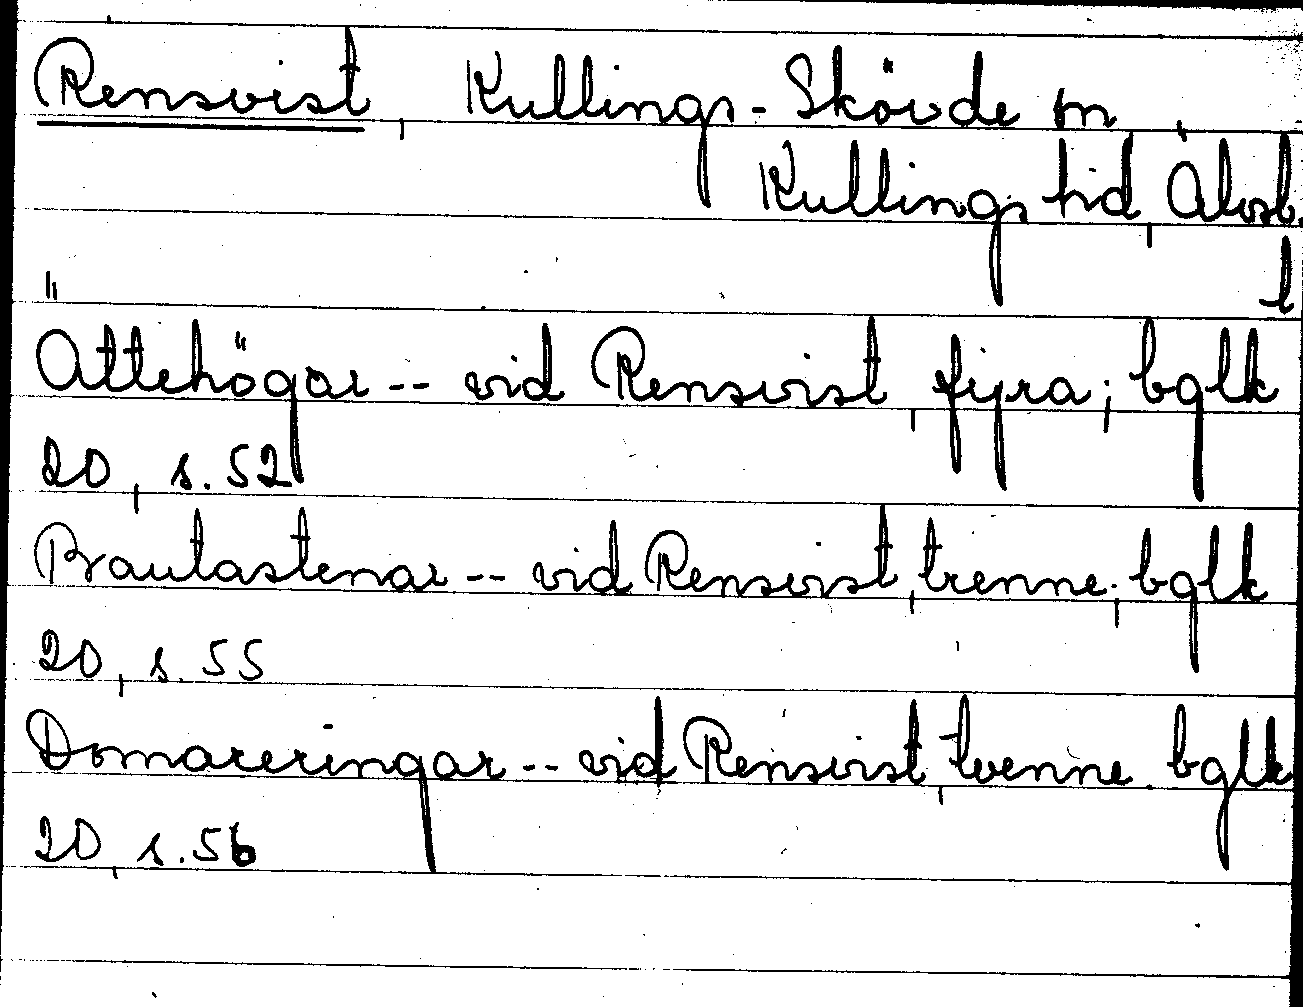 Rensvist, Kullings-Skövde sn,
Kullings hd, Älvsb.
l
Ättehögar -- vid Rensvist, fyra; bglk
20, s. 52
Brautastenar -- vid Rensvist, trenne; bglk
20, s. 55
Domareringar -- vid Rensvist, tvenne. bglk
20, s. 56